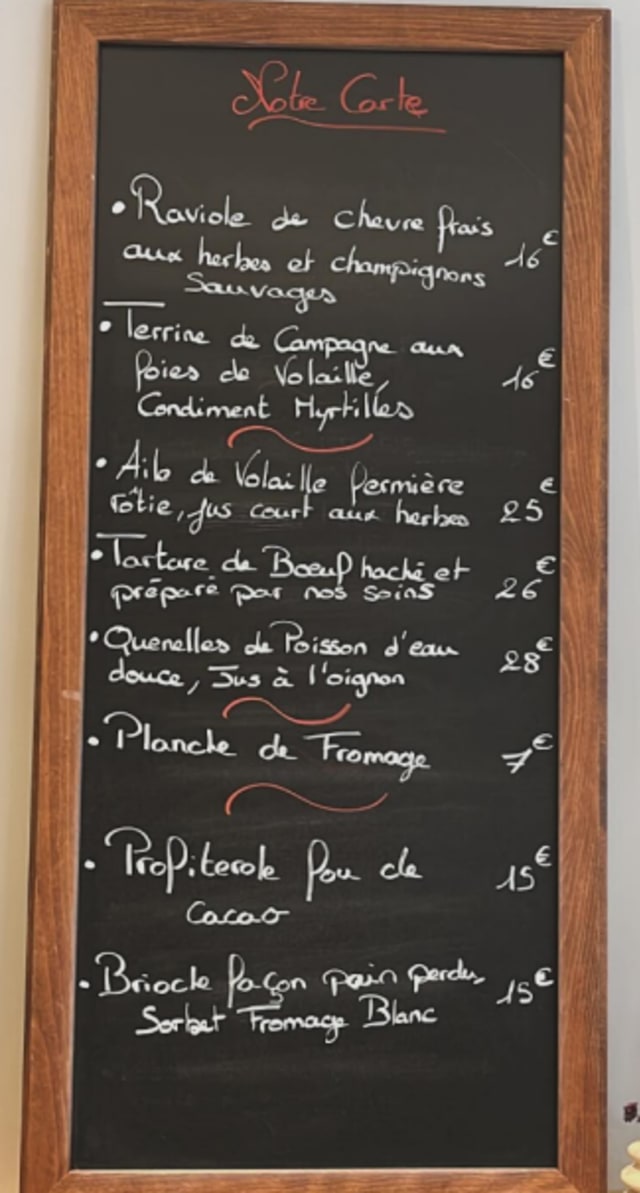 Notre Carte
• Raviole de chevre frais
aux herbes et champignons 16€
Sauvages
• Terrine de Campagne aux
foies de Volaille, 16€
Condiment Myrtilles
• Aile de Volaille fermière
rôtie, jus court aux herbes 25€
• Tartare de Boeuf haché et
préparé par nos soins 26€
• Quenelles de Poisson d'eau
douce, Jus à l'oignon 28€
• Planche de Fromage 7€
• Profiterole fou de 15€
Cacao
• Brioche façon pain perdu, 15€
Sorbet Fromage Blanc